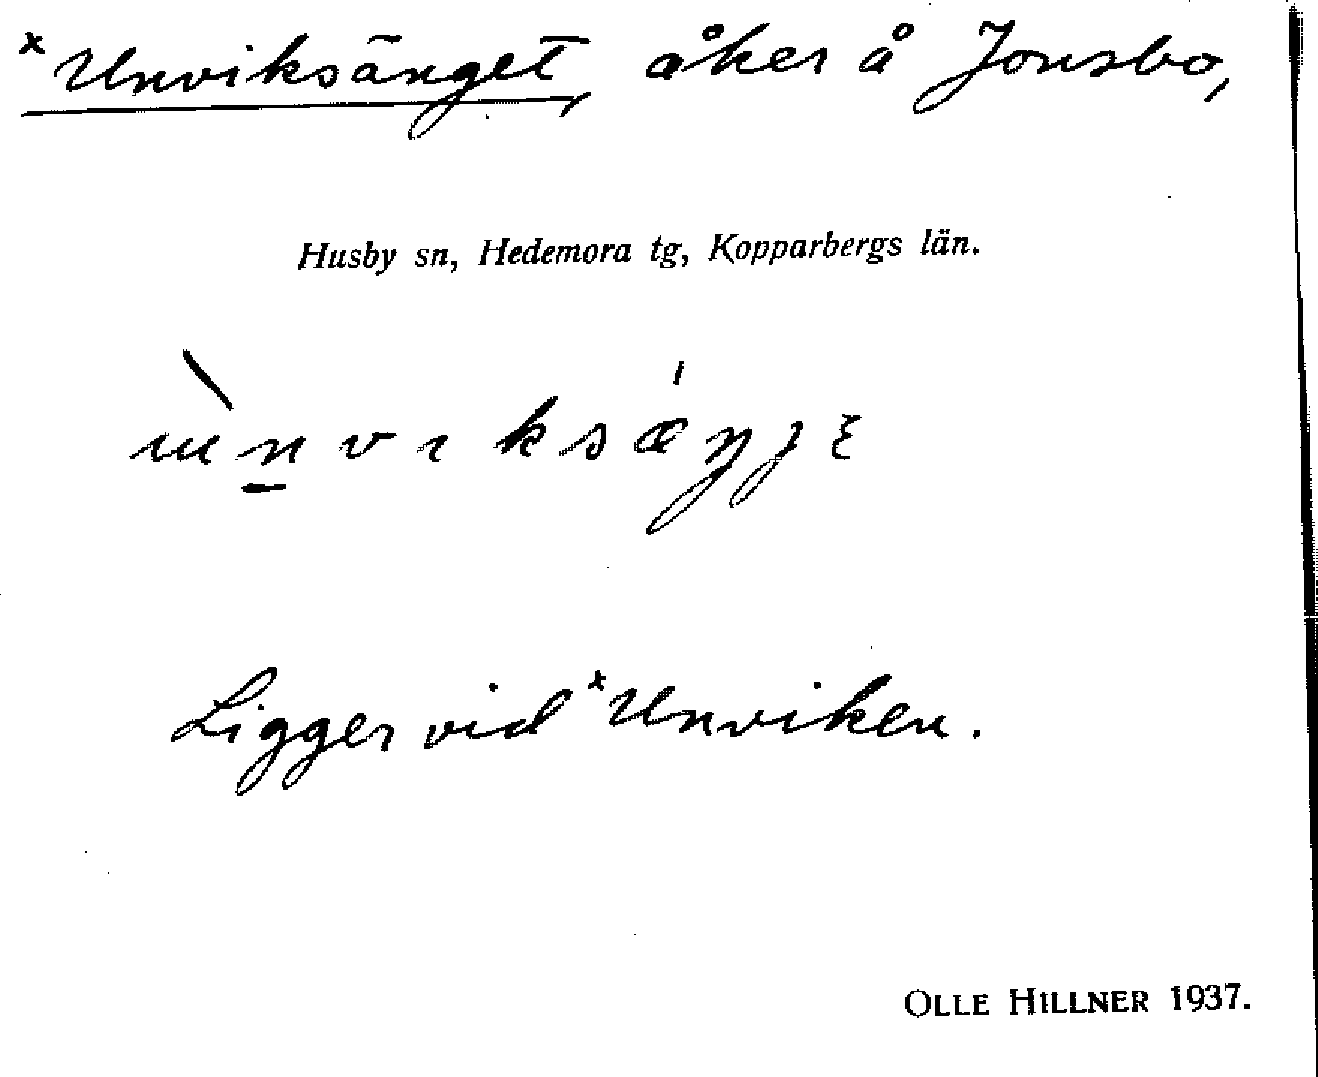 ×Unviksänget, åker å Jonsbo,
Husby sn, Hedemora tg, Kopparbergs län.
Ligger vid ×Unviken.
OLLE HILLNER 1937.